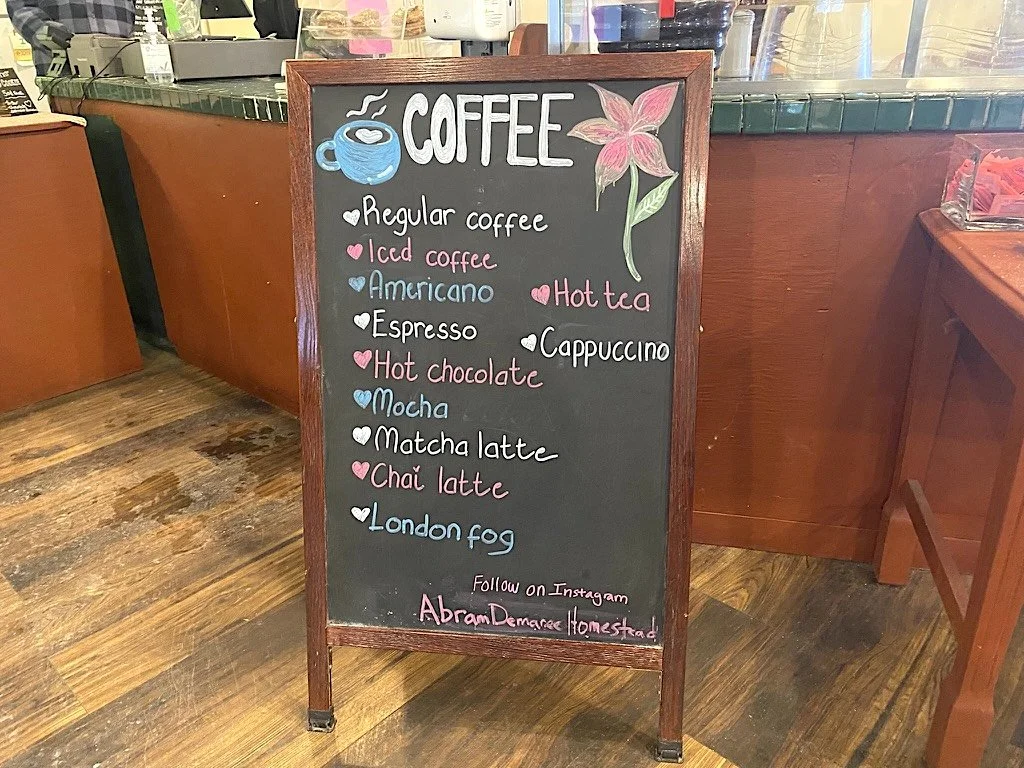 COFFEE
Regular coffee
Iced coffee
Americano
Espresso
Hot chocolate
Mocha
Matcha latte
Chai latte
London fog
Hot tea
Cappuccino
Follow on Instagram
AbramDemaree Homestead